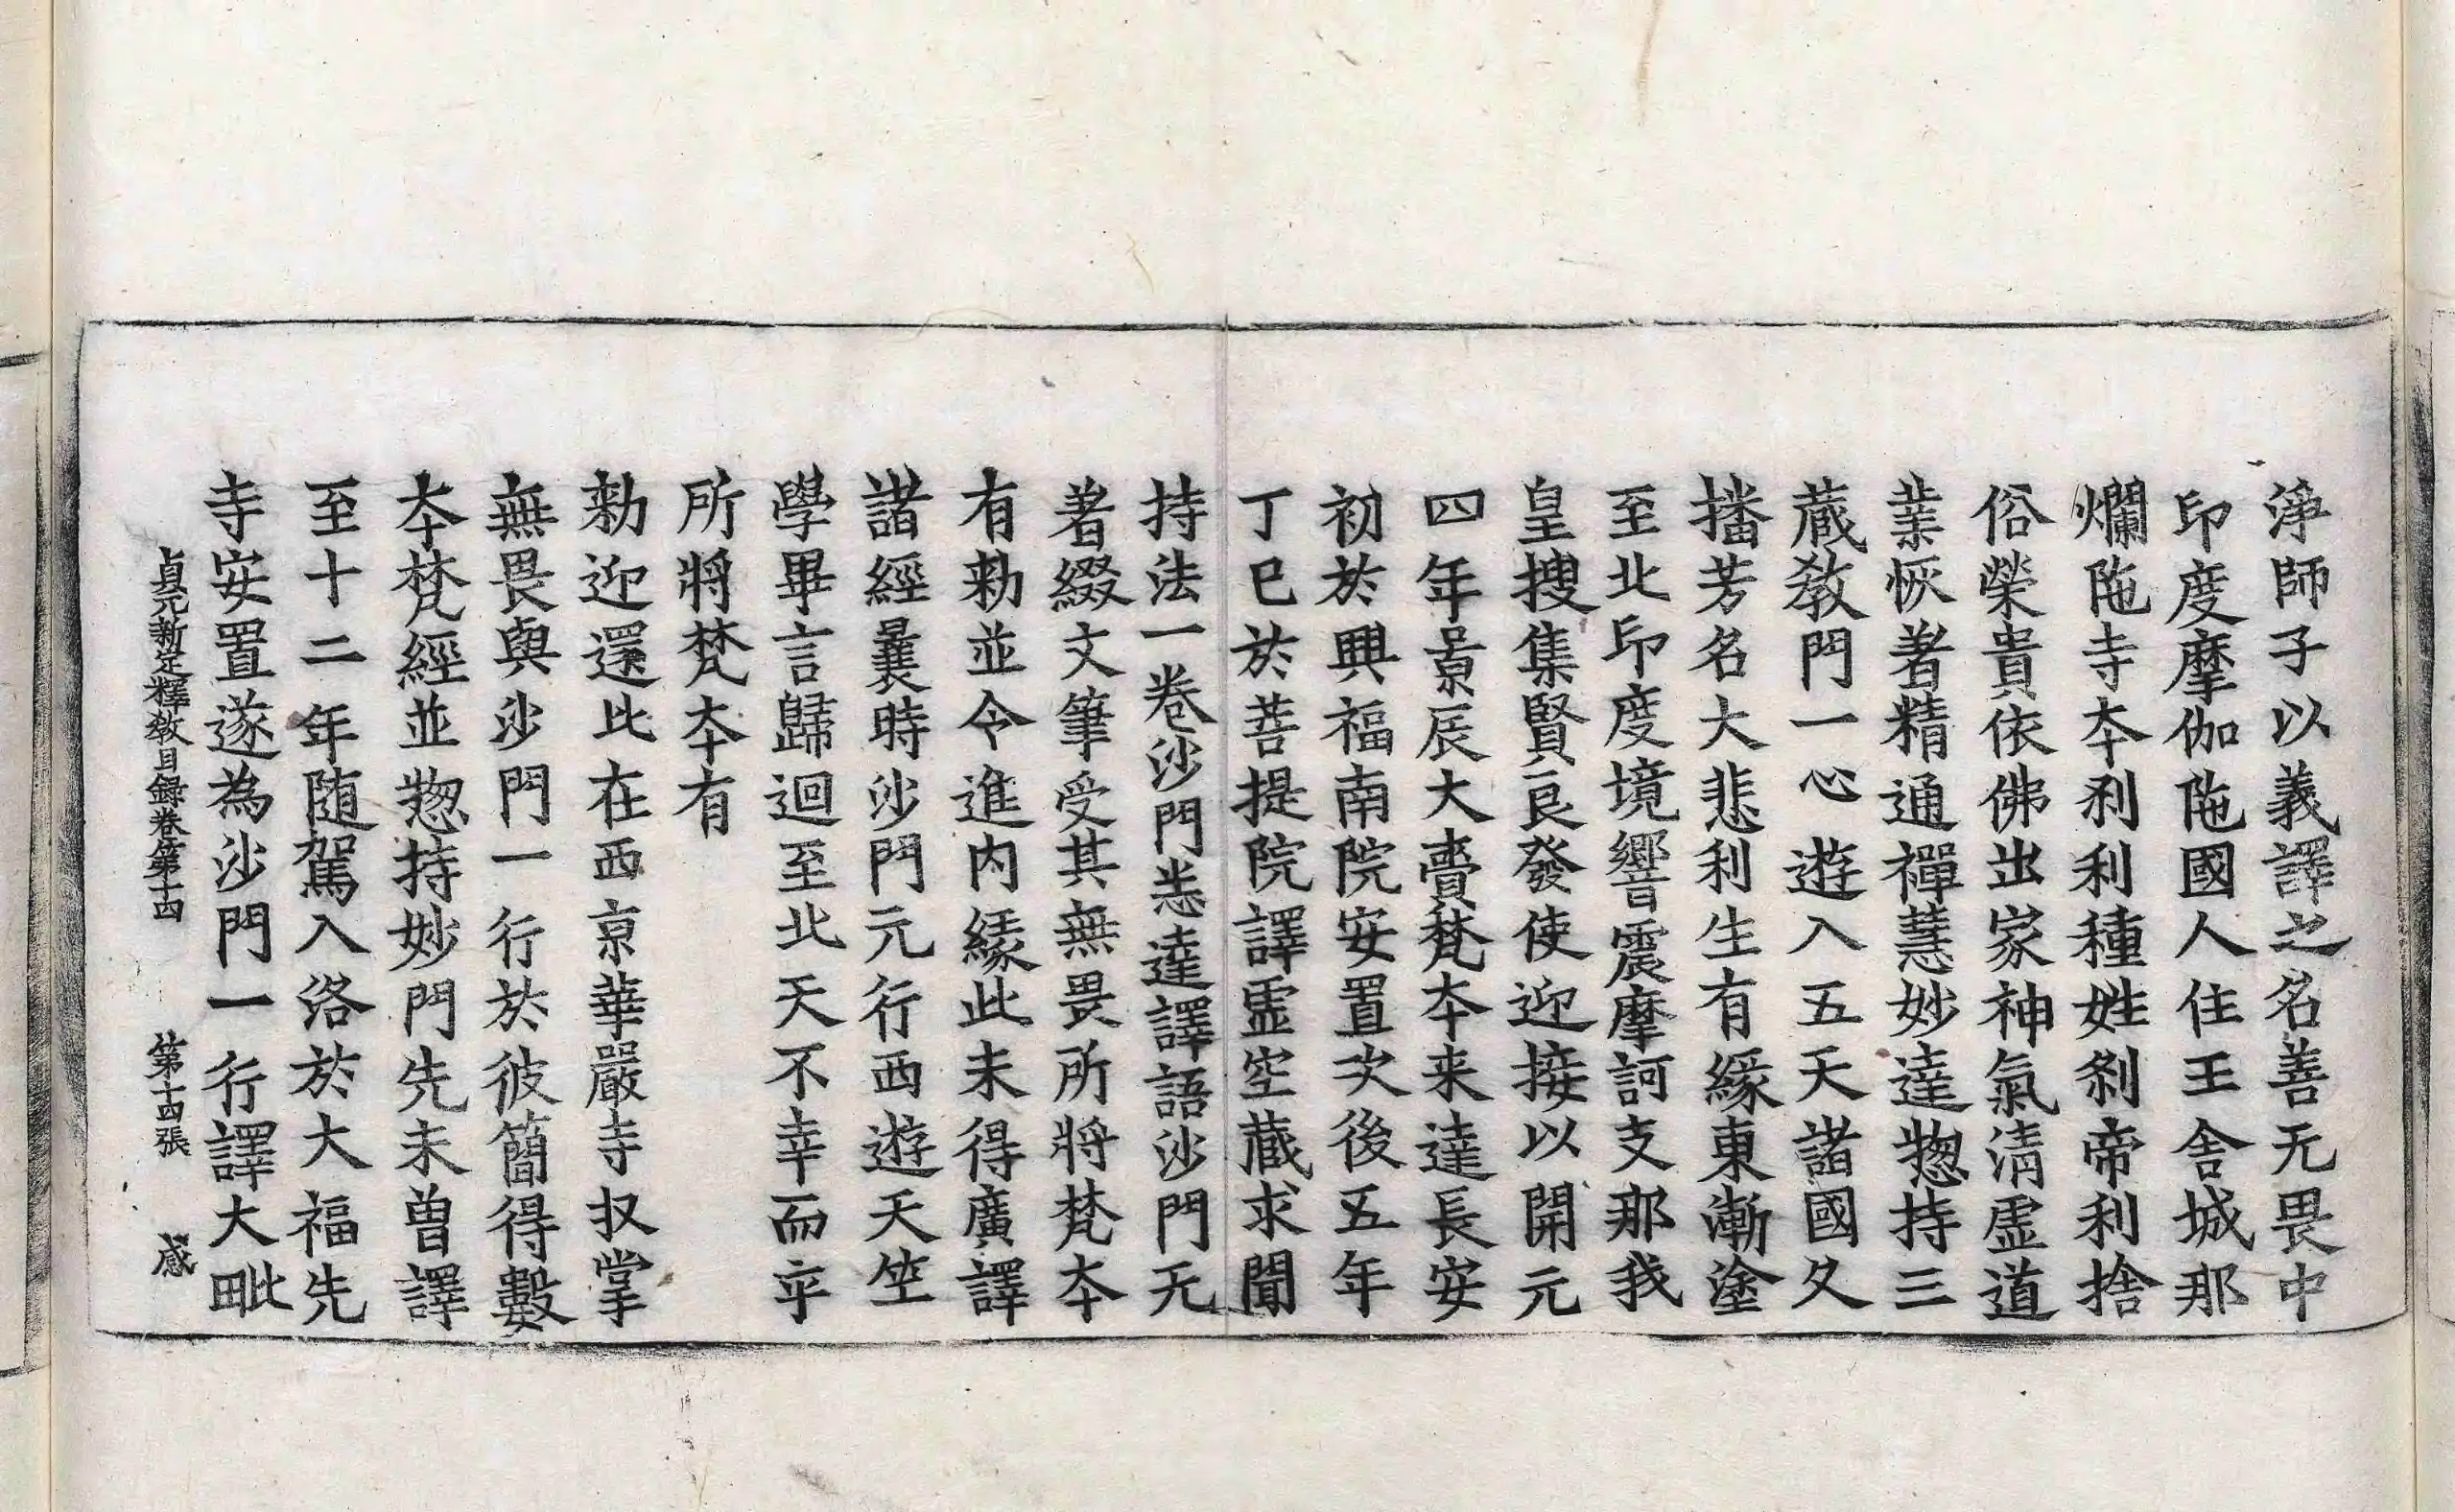 淨師子以義譯之名善无畏中
印度摩伽陁國人住王舍城那
爛陁寺夲刹利種姓刹帝利捨
俗榮貴依佛出家神氣清虛道
業恢著精通禪慧妙達揔持三
蔵教門一心遊入五天諸國久
播芳名大悲利生有緣東漸塗
至北印度境響震摩訶支那我
皇搜集賢良發使迎接以開元
四年景辰大賷梵夲来達長安
初於興福南院安置次後五年
丁巳於菩提院譯虛空蔵求聞
持法一卷沙門悉達譯語沙門无
著綴文筆受其無畏所將梵夲
有勑並令進内緣此未得廣譯
諸經曩時沙門元行西遊天竺
學畢言歸迴至北天不幸而卒
所將梵夲有
勑迎還比在西京華嚴寺収掌
無畏與沙門一行於彼簡得數
夲梵經並揔持妙門先未曾譯
至十二年随駕入洛於大福先
寺安置遂為沙門一行譯大毗
貞元新定釋教目録卷第十四 第十四張 感